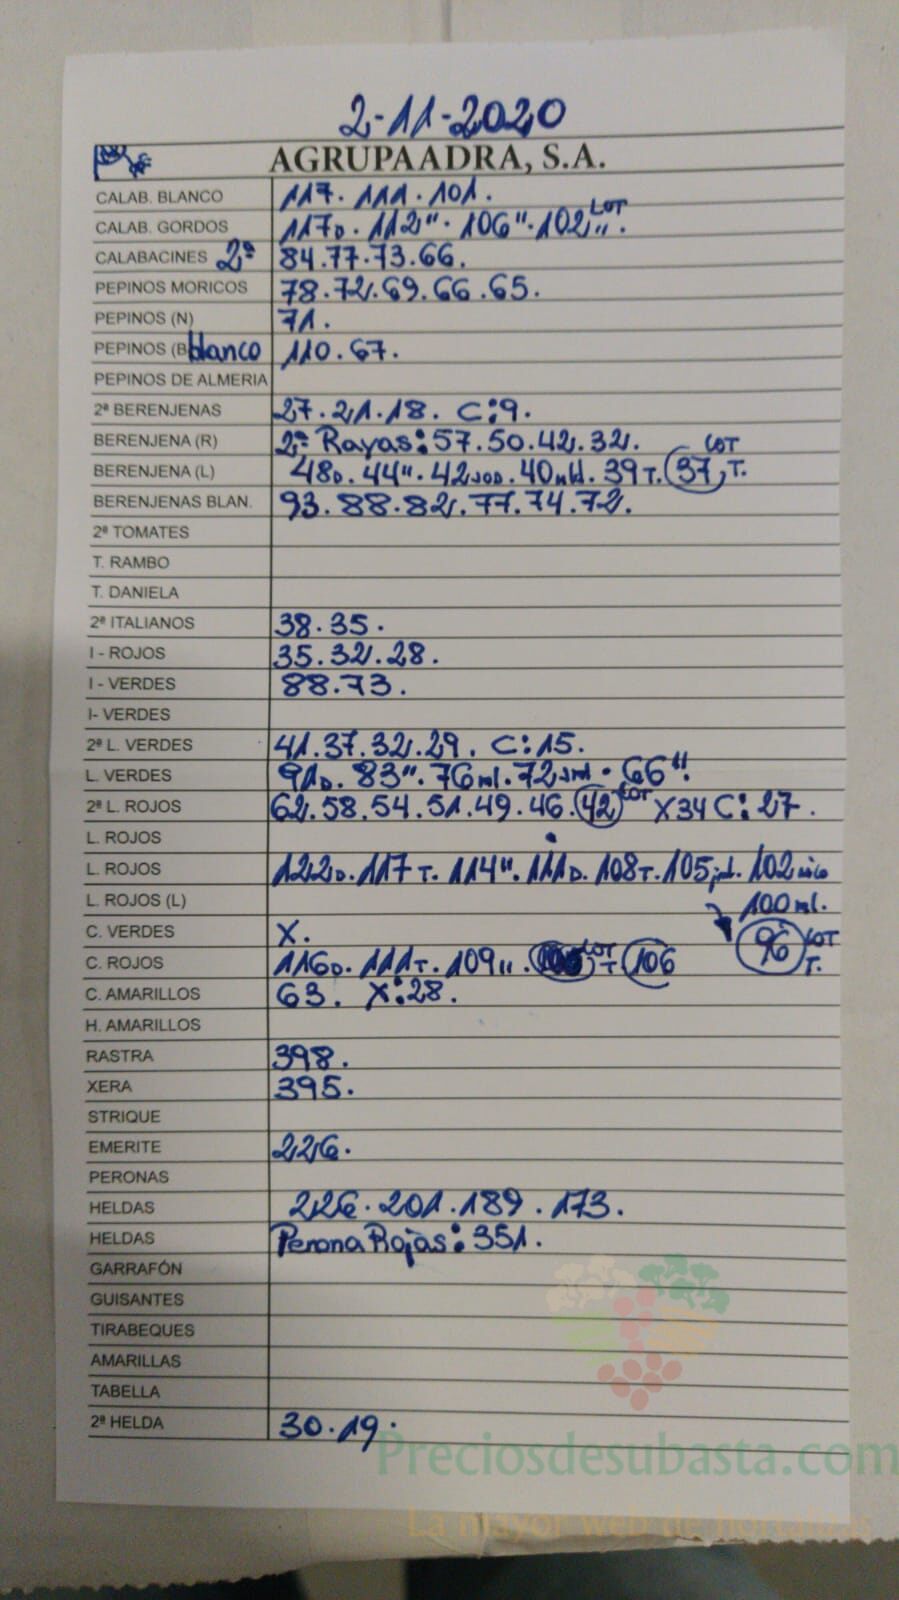 2-11-2020
AGRUPAADRA, S.A.
CALAB. BLANCO 117. 111. 101.
CALAB. GORDOS 117D. 112". 106". 102". LOT
CALABACINES 2ª 84.77.73.66.
PEPINOS MORICOS 78.72.69.66.65.
PEPINOS (N) 71.
PEPINOS (B blanco 110.67.
PEPINOS DE ALMERIA
2ª BERENJENAS 27.21.18. C:9.
BERENJENA (R) 2ª Rayas: 57.50.42.32.
BERENJENA (L) 48D. 44". 42. 40. 39T. 37 T. LOT
BERENJENAS BLAN. 93.88.82.77.74.72.
2ª TOMATES
T. RAMBO
T. DANIELA
2ª ITALIANOS 38.35.
I - ROJOS 35.32.28.
I - VERDES 88.73.
I- VERDES
2ª L. VERDES 41.37.32.29. C:15.
L. VERDES 91D. 83". 76ml. 72. 66".
2ª L. ROJOS 62.58.54.51.49.46. 42 LOT X34 C:27.
L. ROJOS
L. ROJOS 122D. 117T. 114". 111D. 108T. 105. 102
L. ROJOS (L) 100ml.
C. VERDES X. 96 LOT T.
C. ROJOS 116D. 111T. 109". LOT T 106
C. AMARILLOS 63. X:28.
H. AMARILLOS
RASTRA 398.
XERA 395.
STRIQUE
EMERITE 226.
PERONAS
HELDAS 226.201.189.173.
HELDAS Perona Rojas: 351.
GARRAFÓN
GUISANTES
TIRABEQUES
AMARILLAS
TABELLA
2ª HELDA 30.19.
Preciosdesubasta.com
La mayor web de hortalizas